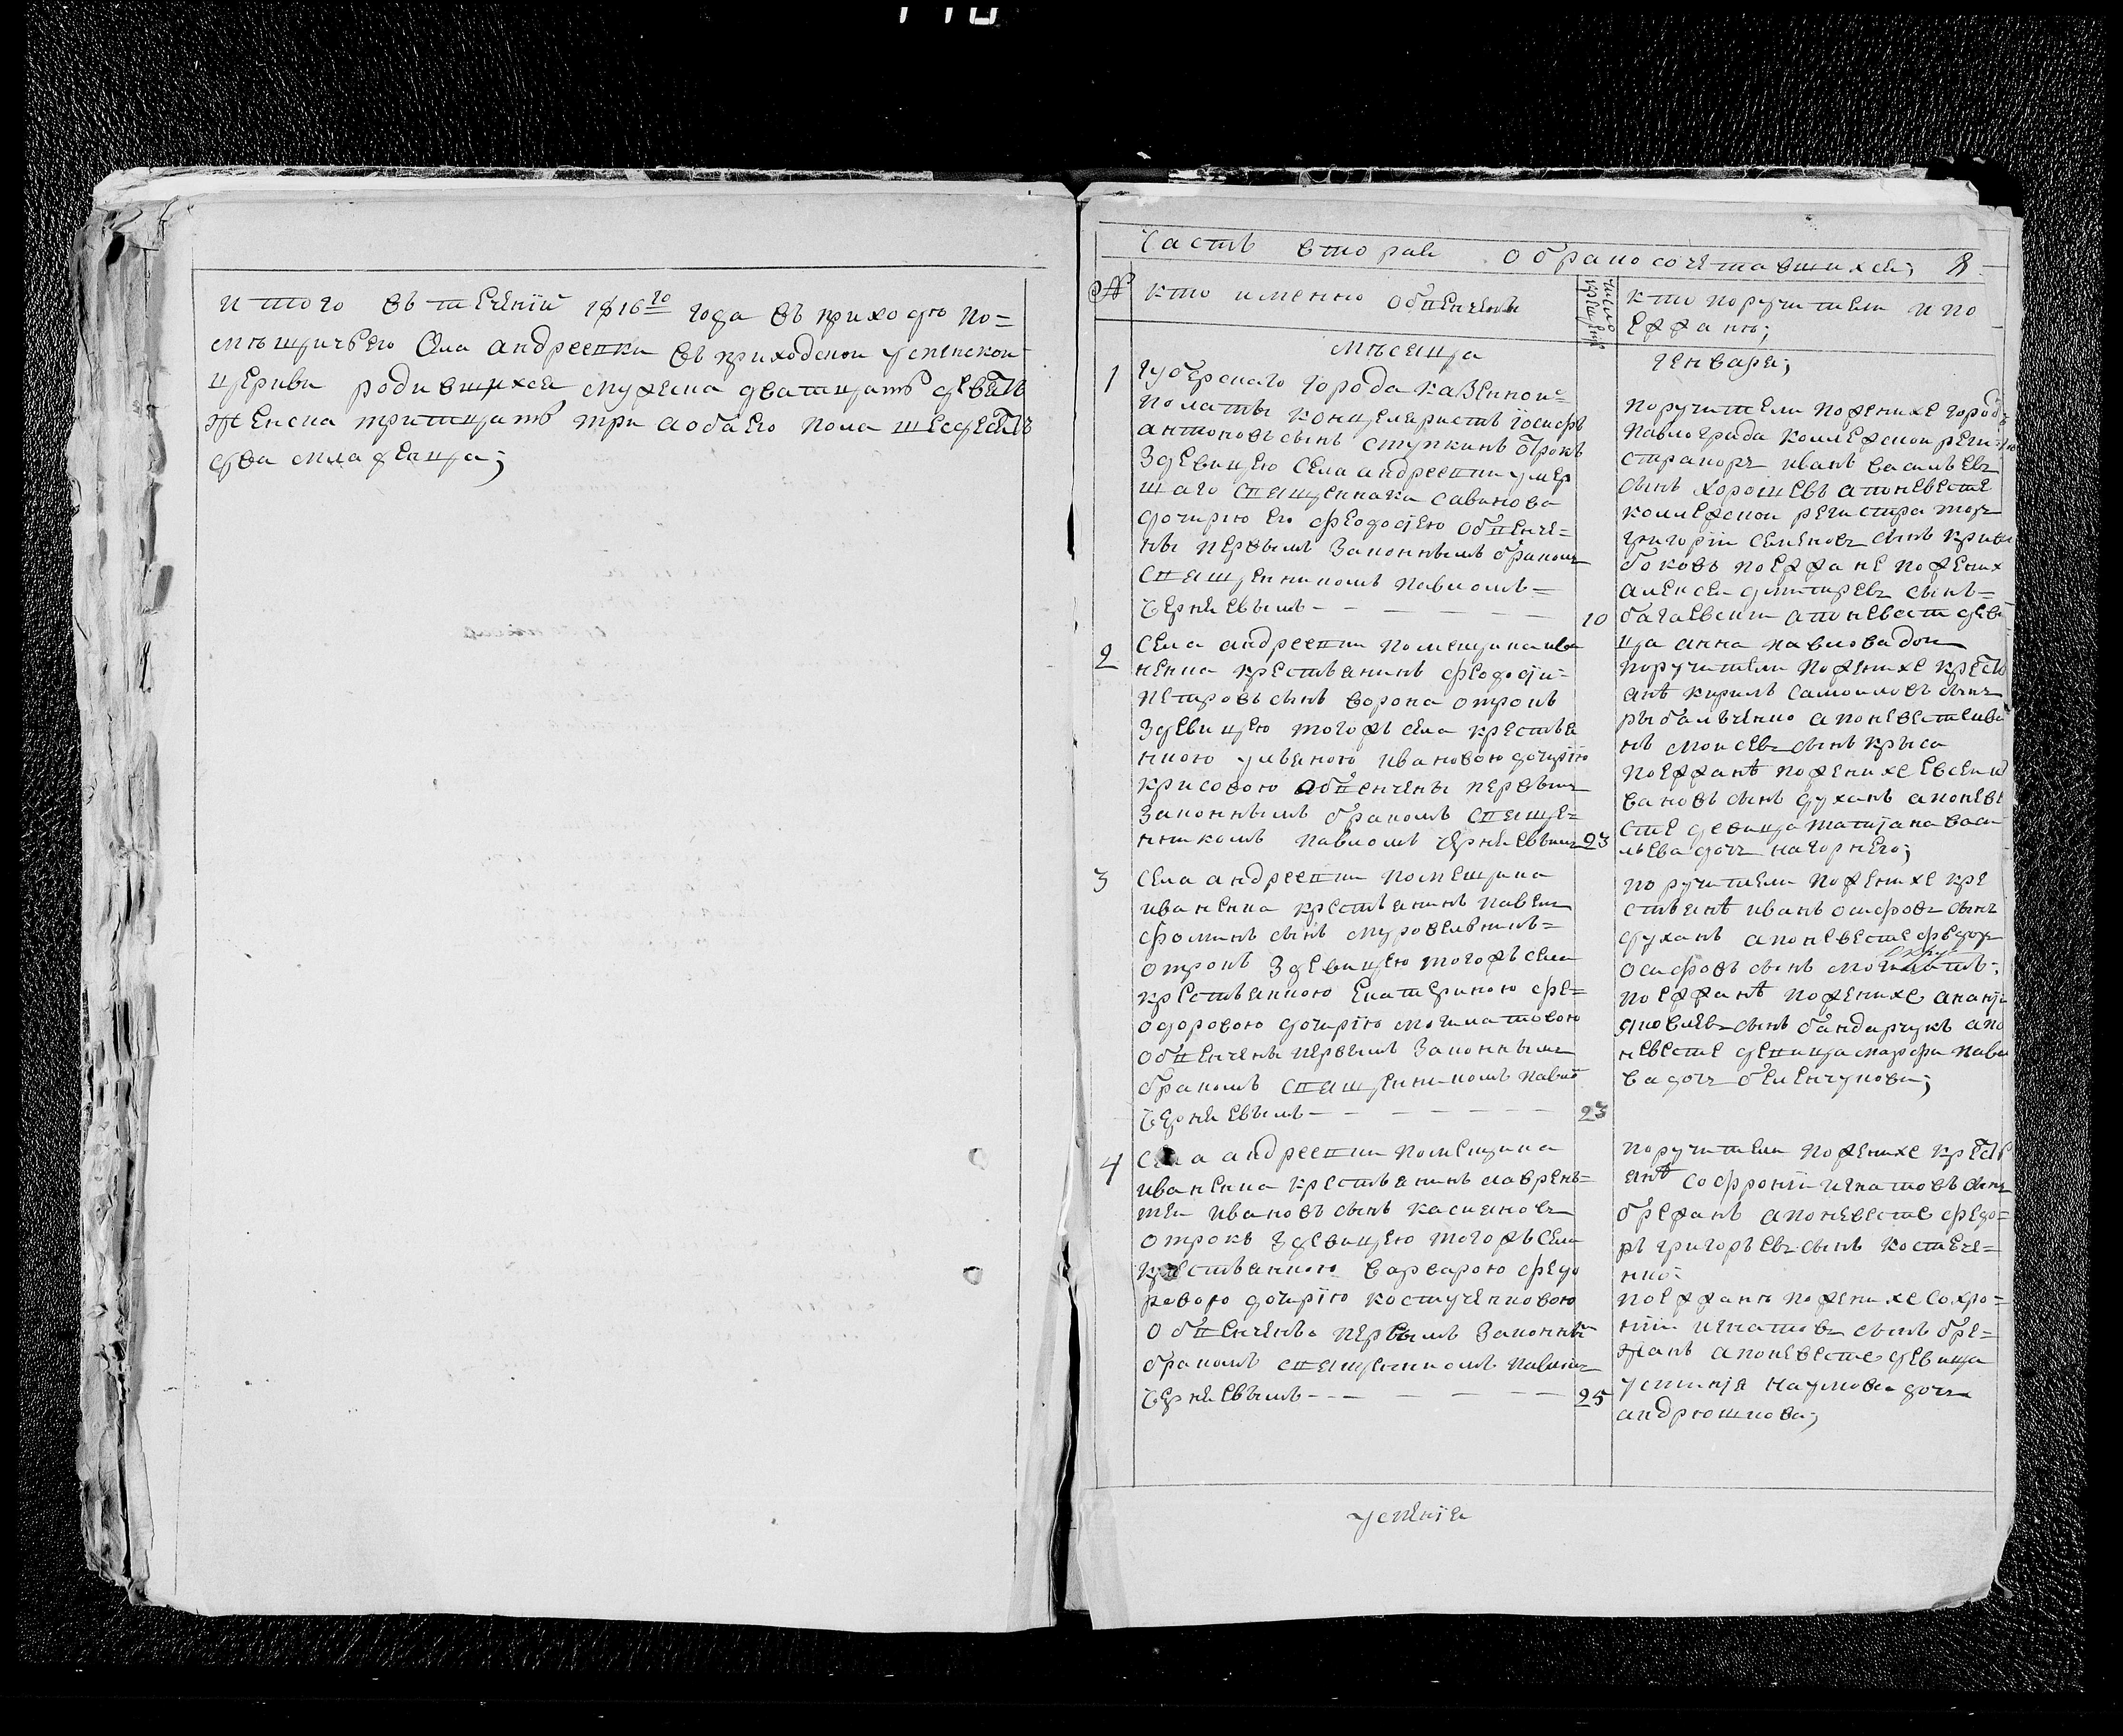 итого въ теченїи 1816го года въ приходѣ по=
мѣщичьего села андреевки въ приходской успенской
церкви родившихся мужеска дватцать девять
женска тритцать три аобаего пола шесдесятъ
два младенца;
Часть вторая обракосочетавшихся; 8
№ кто именно обвенчанъ
число
кто поручители и по
езжанѣ;
мѣсяца
генваря;
1 губернскаго города казенной
полаты концеляристъ їосифъ
антоновъ сынъ ступкинъ отрокъ
здевицею села андреевки умер
шаго священника савинова
дочирю его феодосїею обвенче=
ны первымъ законнымъ бракомъ
священникомъ павломъ=
Черняевымъ 10
поручители пожениxе город
павлограда коллежской реги=
страторъ иванъ васильевъ
сынъ хорошевъ апоневесте
коллежской регистраторъ
григорїи семеновъ сынъ криво
боковъ поезжане поженихе
алексеи димитриевъ сынъ=
багаевски апоневести деви
ца анна павлова дочь
2 села андреевки помещика ива
ненка крестьянинъ феодосїи=
петровъ сынъ ворона отрокъ
здевицею тогожъ села крестья
нкою ульяною ивановою дочирїю
крисовою обвенчены первымъ
законнымъ бракомъ священ=
никомъ павломъ черняевымъ 23
поручители поженихе кресть
янѣ кирилъ самоиловъ сынъ
рыбальченко апоневесте ива
нъ моисевъ сынъ крыса
поезжанѣ поженихе евсеи и
вановъ сынъ духанъ апоневе
сте девица татїана васи
льева дочъ нагорнего;
3 села андреевки помещика
иваненка крестьянинъ павелъ
фоминъ сынъ муровельникъ=
отрокъ здевицею тогожъ села
крестьянкою екатериною фе=
одоровою дочирїю могилатовою
обвенчены первымъ законнымъ
бракомъ священникомъ павло
Черняевымъ 23
поручители поженихе кре
стьянѣ иванъ осифовъ сынъ
духанъ апоневесте федоръ
осифовъ сынъ
поезжанѣ поженихе ананїи
яковлевъ сынъ бандарчукъ апо
невесте девица марфа павло
ва дочъ беленчукова;
4 села андреевки помещика
иваненка крестьянинъ лаврень=
теи ивановъ сынъ касияновъ
отрокъ здевицею тогожъ села
крестьянкою варварою федо
ровою дочирїю костученковою
обвенчены первымъ законны
бракомъ священникомъ павломъ
Черняевымъ 25
поручители поженихе кресть
янѣ софронїи игнатовъ сынъ
брежанъ апоневесте федо=
ръ григорьевъ сынъ костече=
нко
поезжанѣ поженихе сохро=
нїи игнатовъ сынъ бре=
жанъ апоневесте девица
устинїя наумова дочъ
андрюшкова;
успенїя